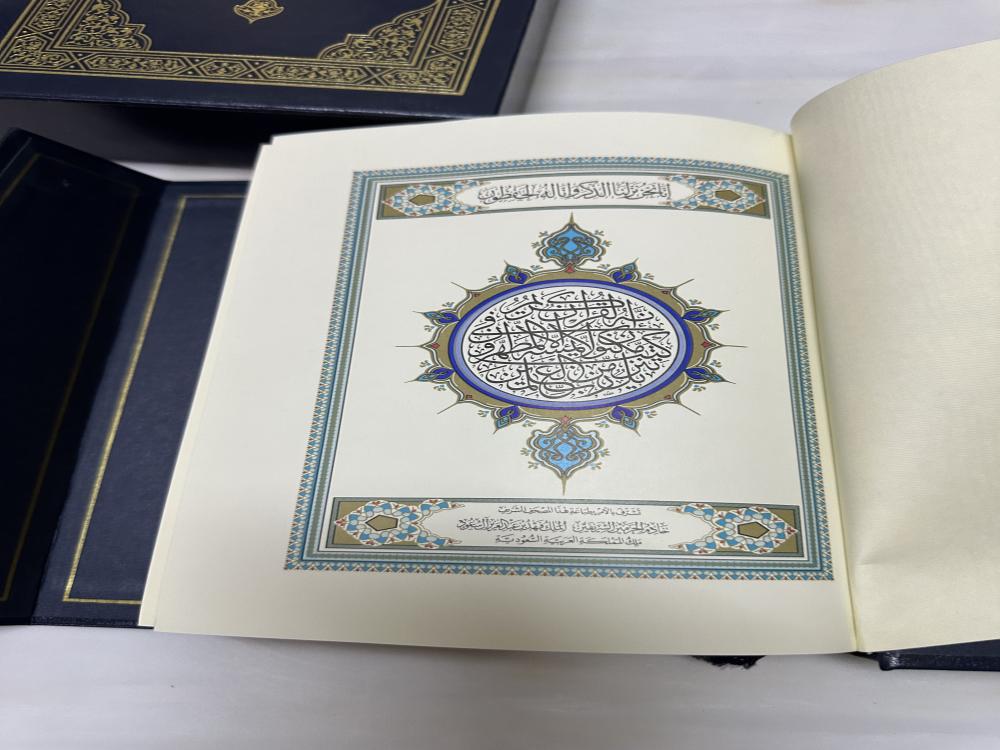 إنا نحن نزلنا الذكر وإنا له لحافظون
إنه لقرآن كريم
في كتاب مكنون لا يمسه إلا المطهرون
تنزيل من رب العالمين
تشرف بالأمر بطباعة هذا المصحف الشريف
خادم الحرمين الشريفين الملك فهد بن عبد العزيز آل سعود
ملك المملكة العربية السعودية